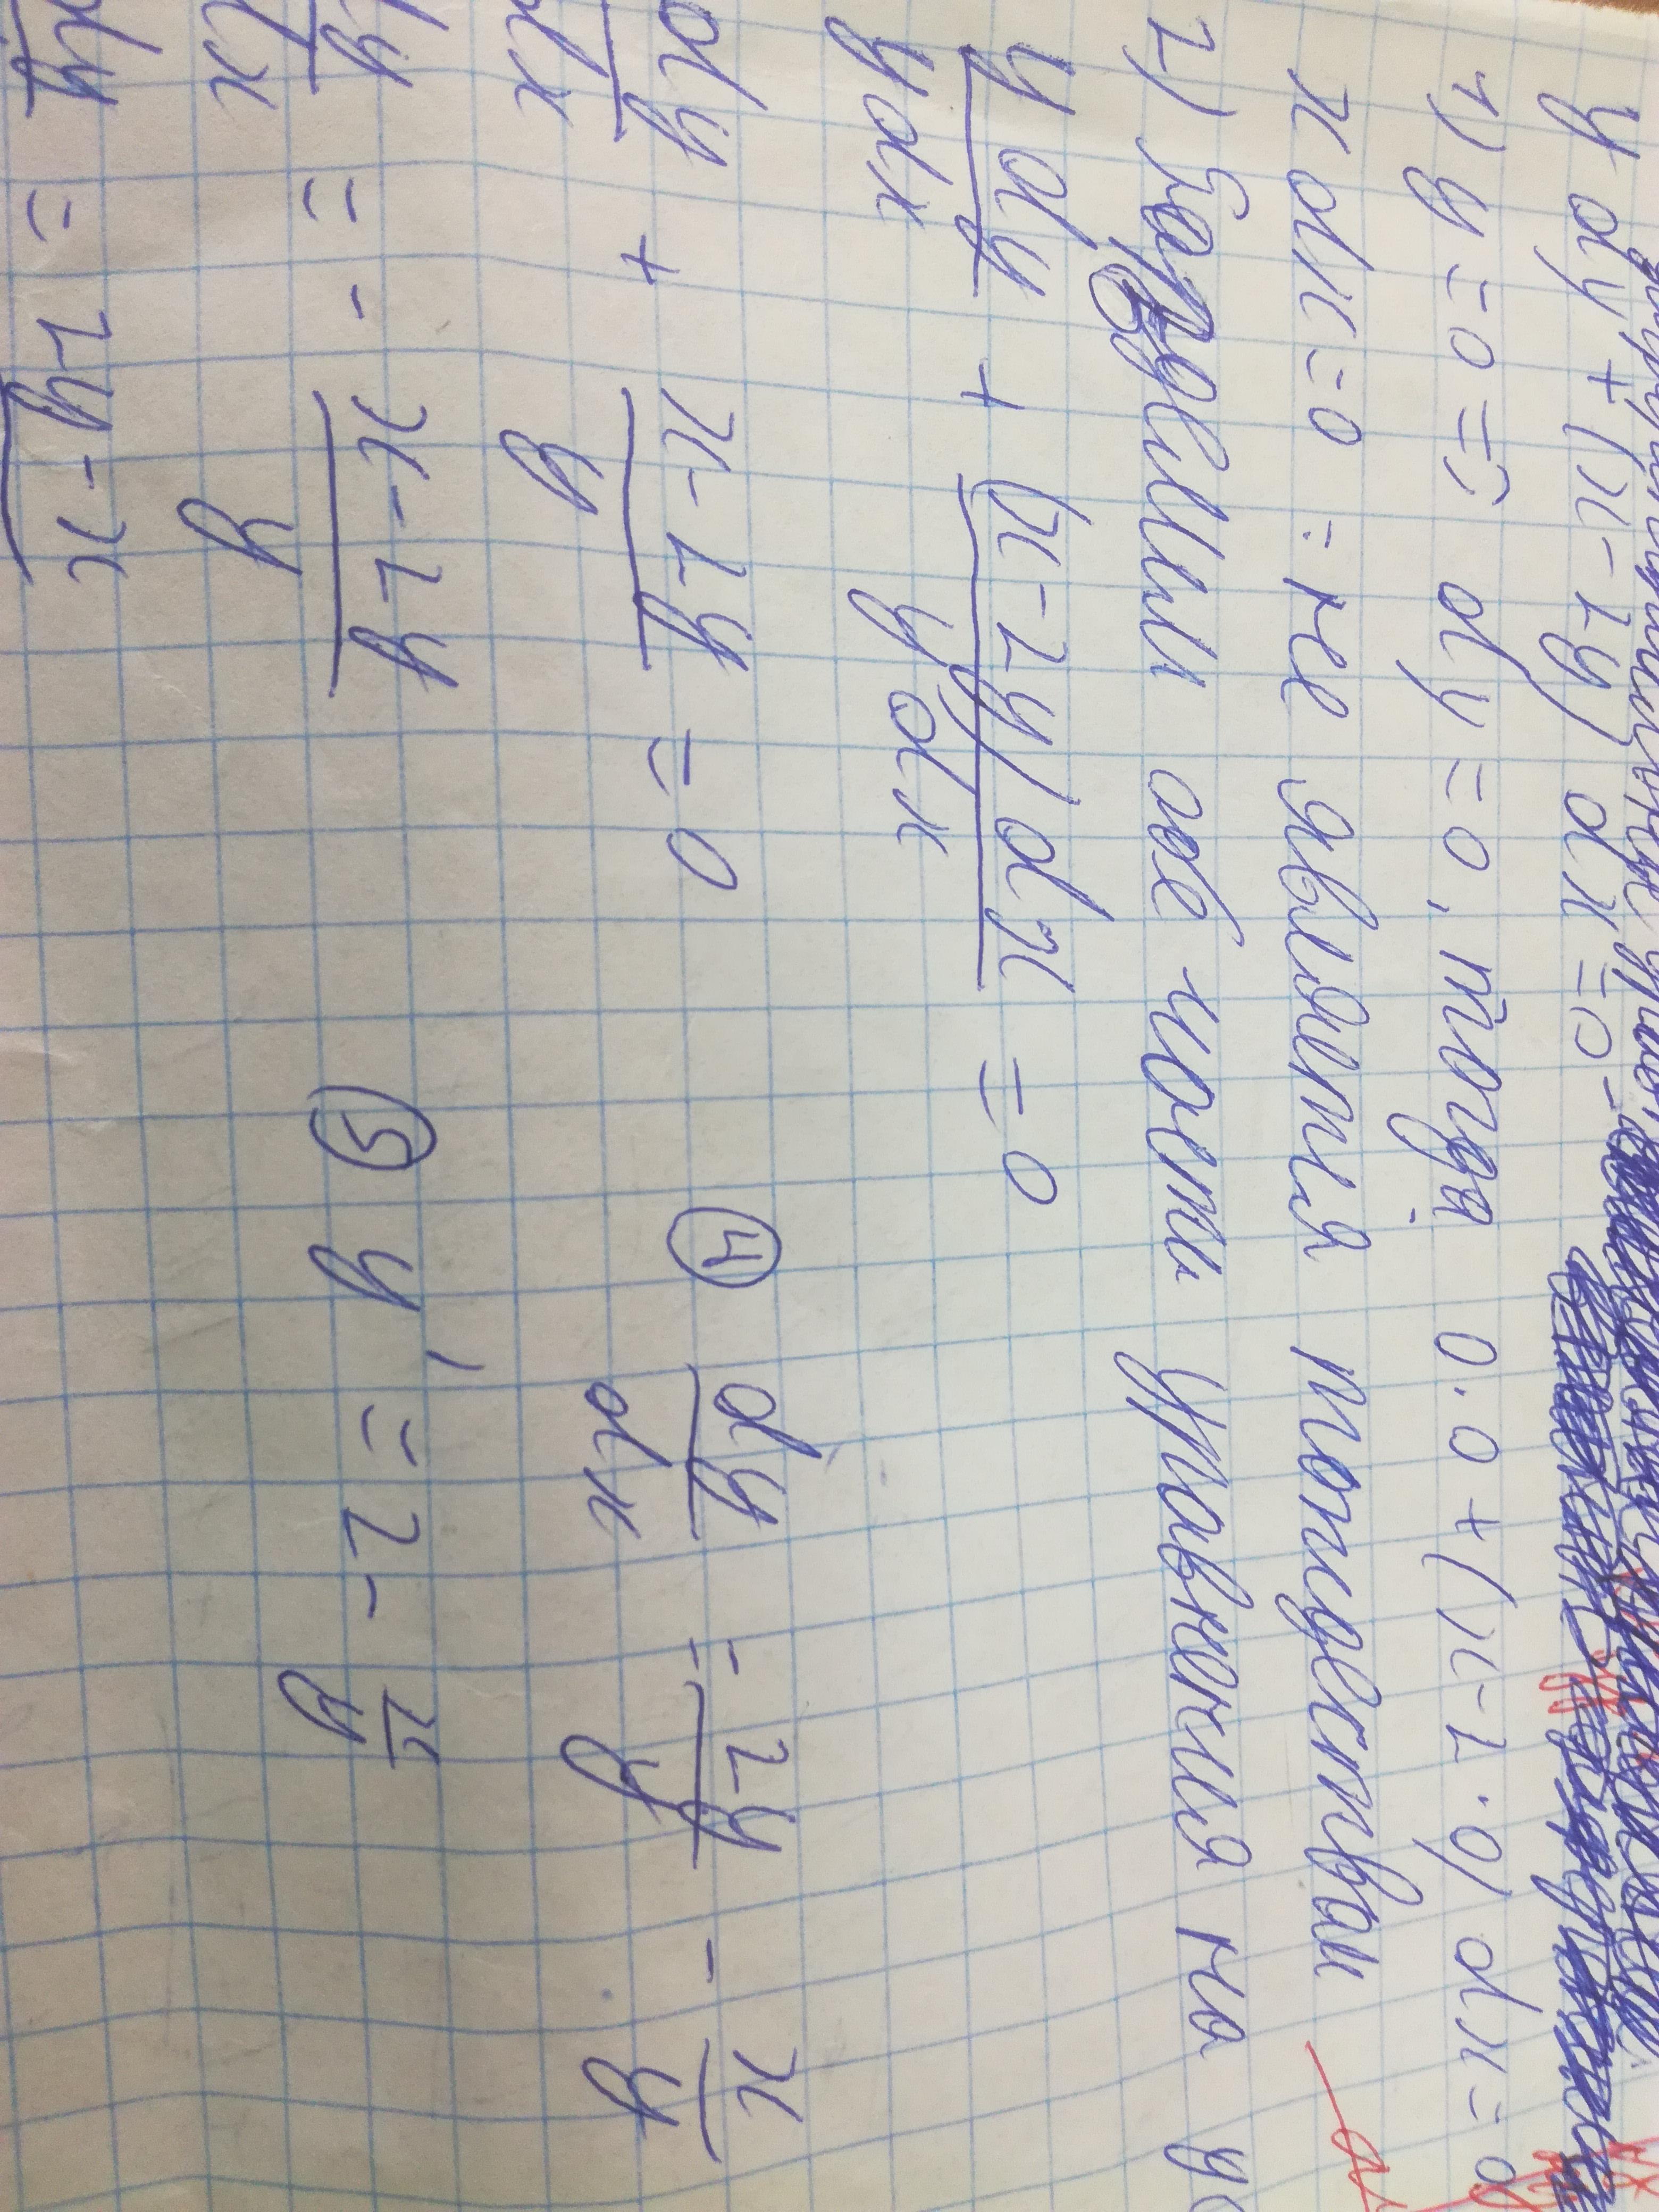 y dy + (x - 2y) dx = 0 -
1) y = 0 => dy = 0, тогда 0·0 + (x - 2·0) dx = 0
x dx = 0 - не является тождеством
2) Разделим обе части уравнения на
y dy / y dx + (x - 2y) dx / y dx = 0
dy / dx + x - 2y / y = 0 ④ dy / dx = 2y / y - x / y
= - x - 2y / y ⑤ y' = 2 - x / y
= 2y - x